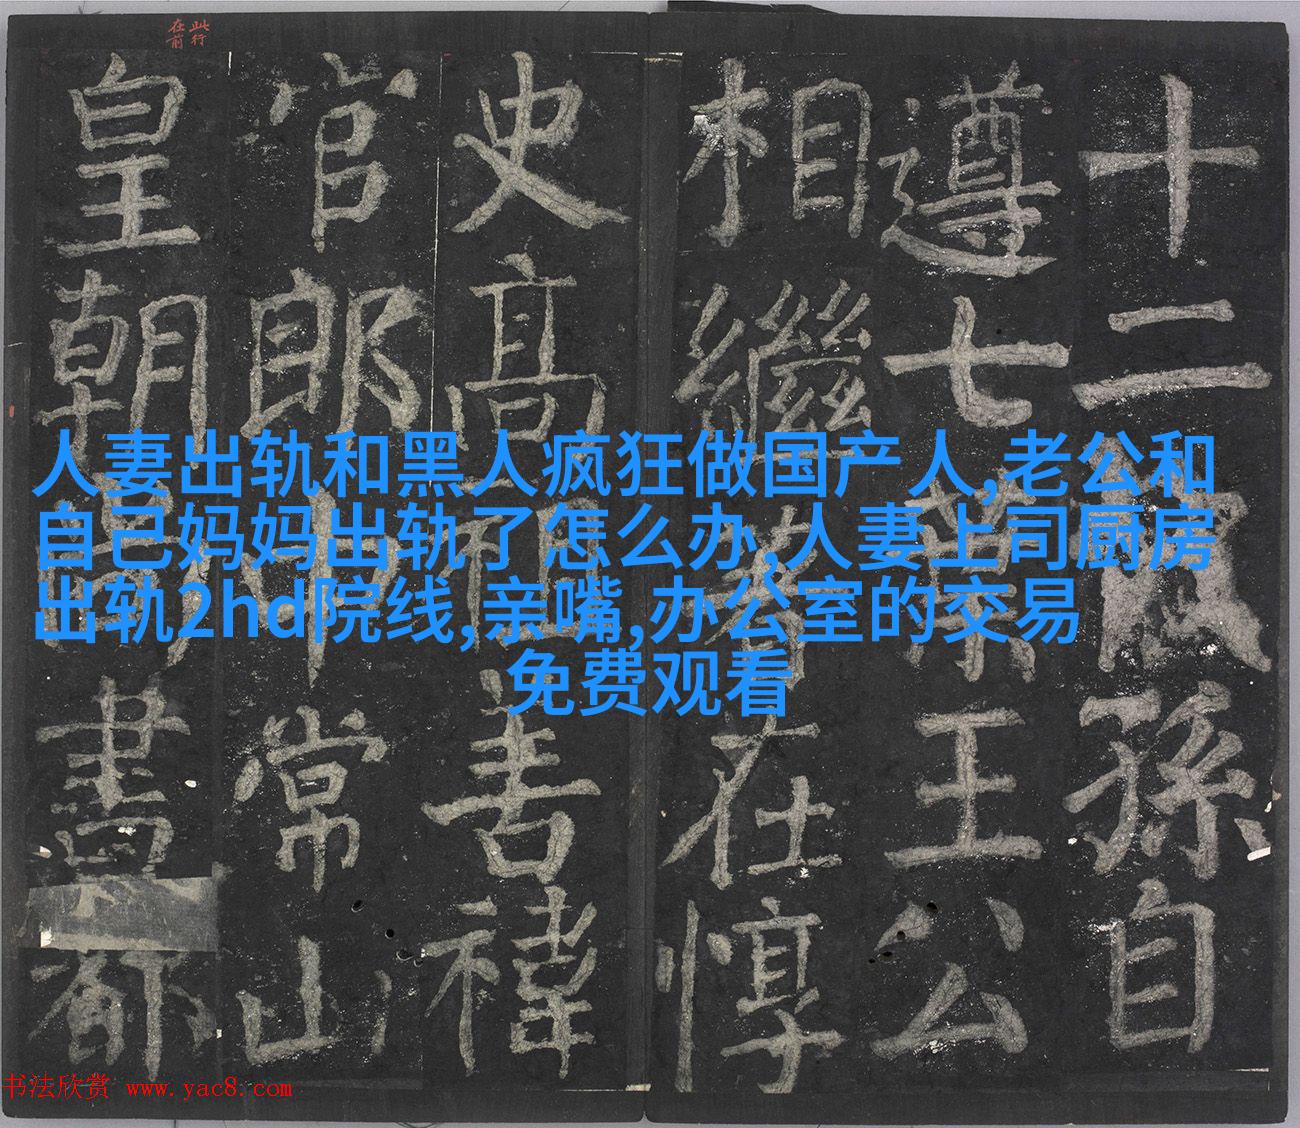 此行
在前
十二孫自
遵七葉王公
相繼著在惇
史高祖善禕
官郎中常山
皇朝尚書都
人妻出轨和黑人疯狂做国产人,老公和
自己妈妈出轨了怎么办,人妻上司厨房
出轨2hd院线,亲嘴,办公室的交易
免费观看
书法欣赏 www.yac8.com